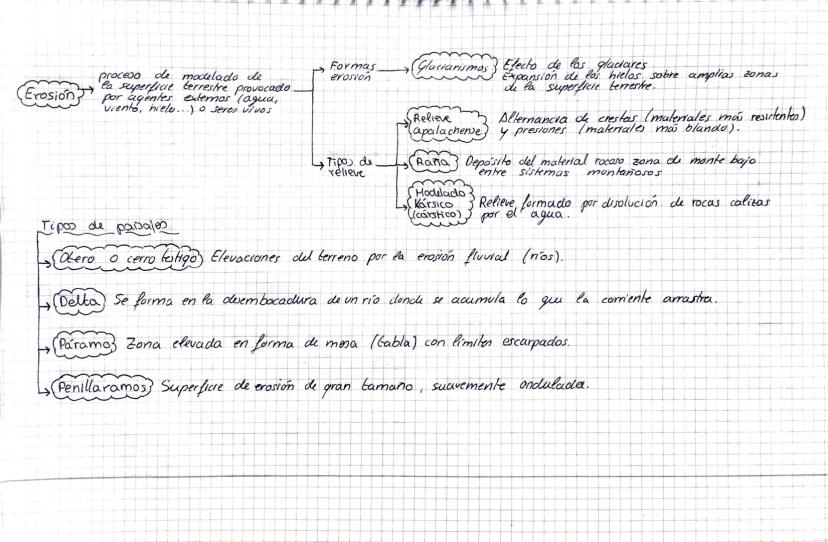 Erosión
proceso de modelado de
la superficie terrestre provocado
por agentes externos (agua,
viento, hielo...) o seres vivos
Formas
erosión
Glaciarismos
Efecto de los glaciares
Expansión de los hielos, sobre amplias zonas
de la superficie terrestre.
Tipos de
relieve
Relieve
apalachense
Alternancia de crestas (materiales más resistentes)
y presiones (materiales más blando).
Raña
Depósito del material rocoso zona de monte bajo
entre sistemas montañosos
Modelado
Kársico
(cárstico)
Relieve formado por disolución de rocas calizas
por el agua.
Tipos de paisajes
Otero o cerro testigo Elevaciones del terreno por la erosión fluvial (ríos).
Delta Se forma en la desembocadura de un río donde se acumula lo que la corriente arrastra.
Páramo Zona elevada en forma de mesa (tabla) con límites escarpados.
Penillaramos Superficie de erosión de gran tamaño, suavemente ondulada.